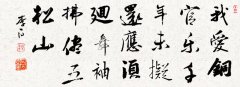 我愛銅
官乐千
年未擬
還應須
廻舞袖
拂儘五
松山
李白